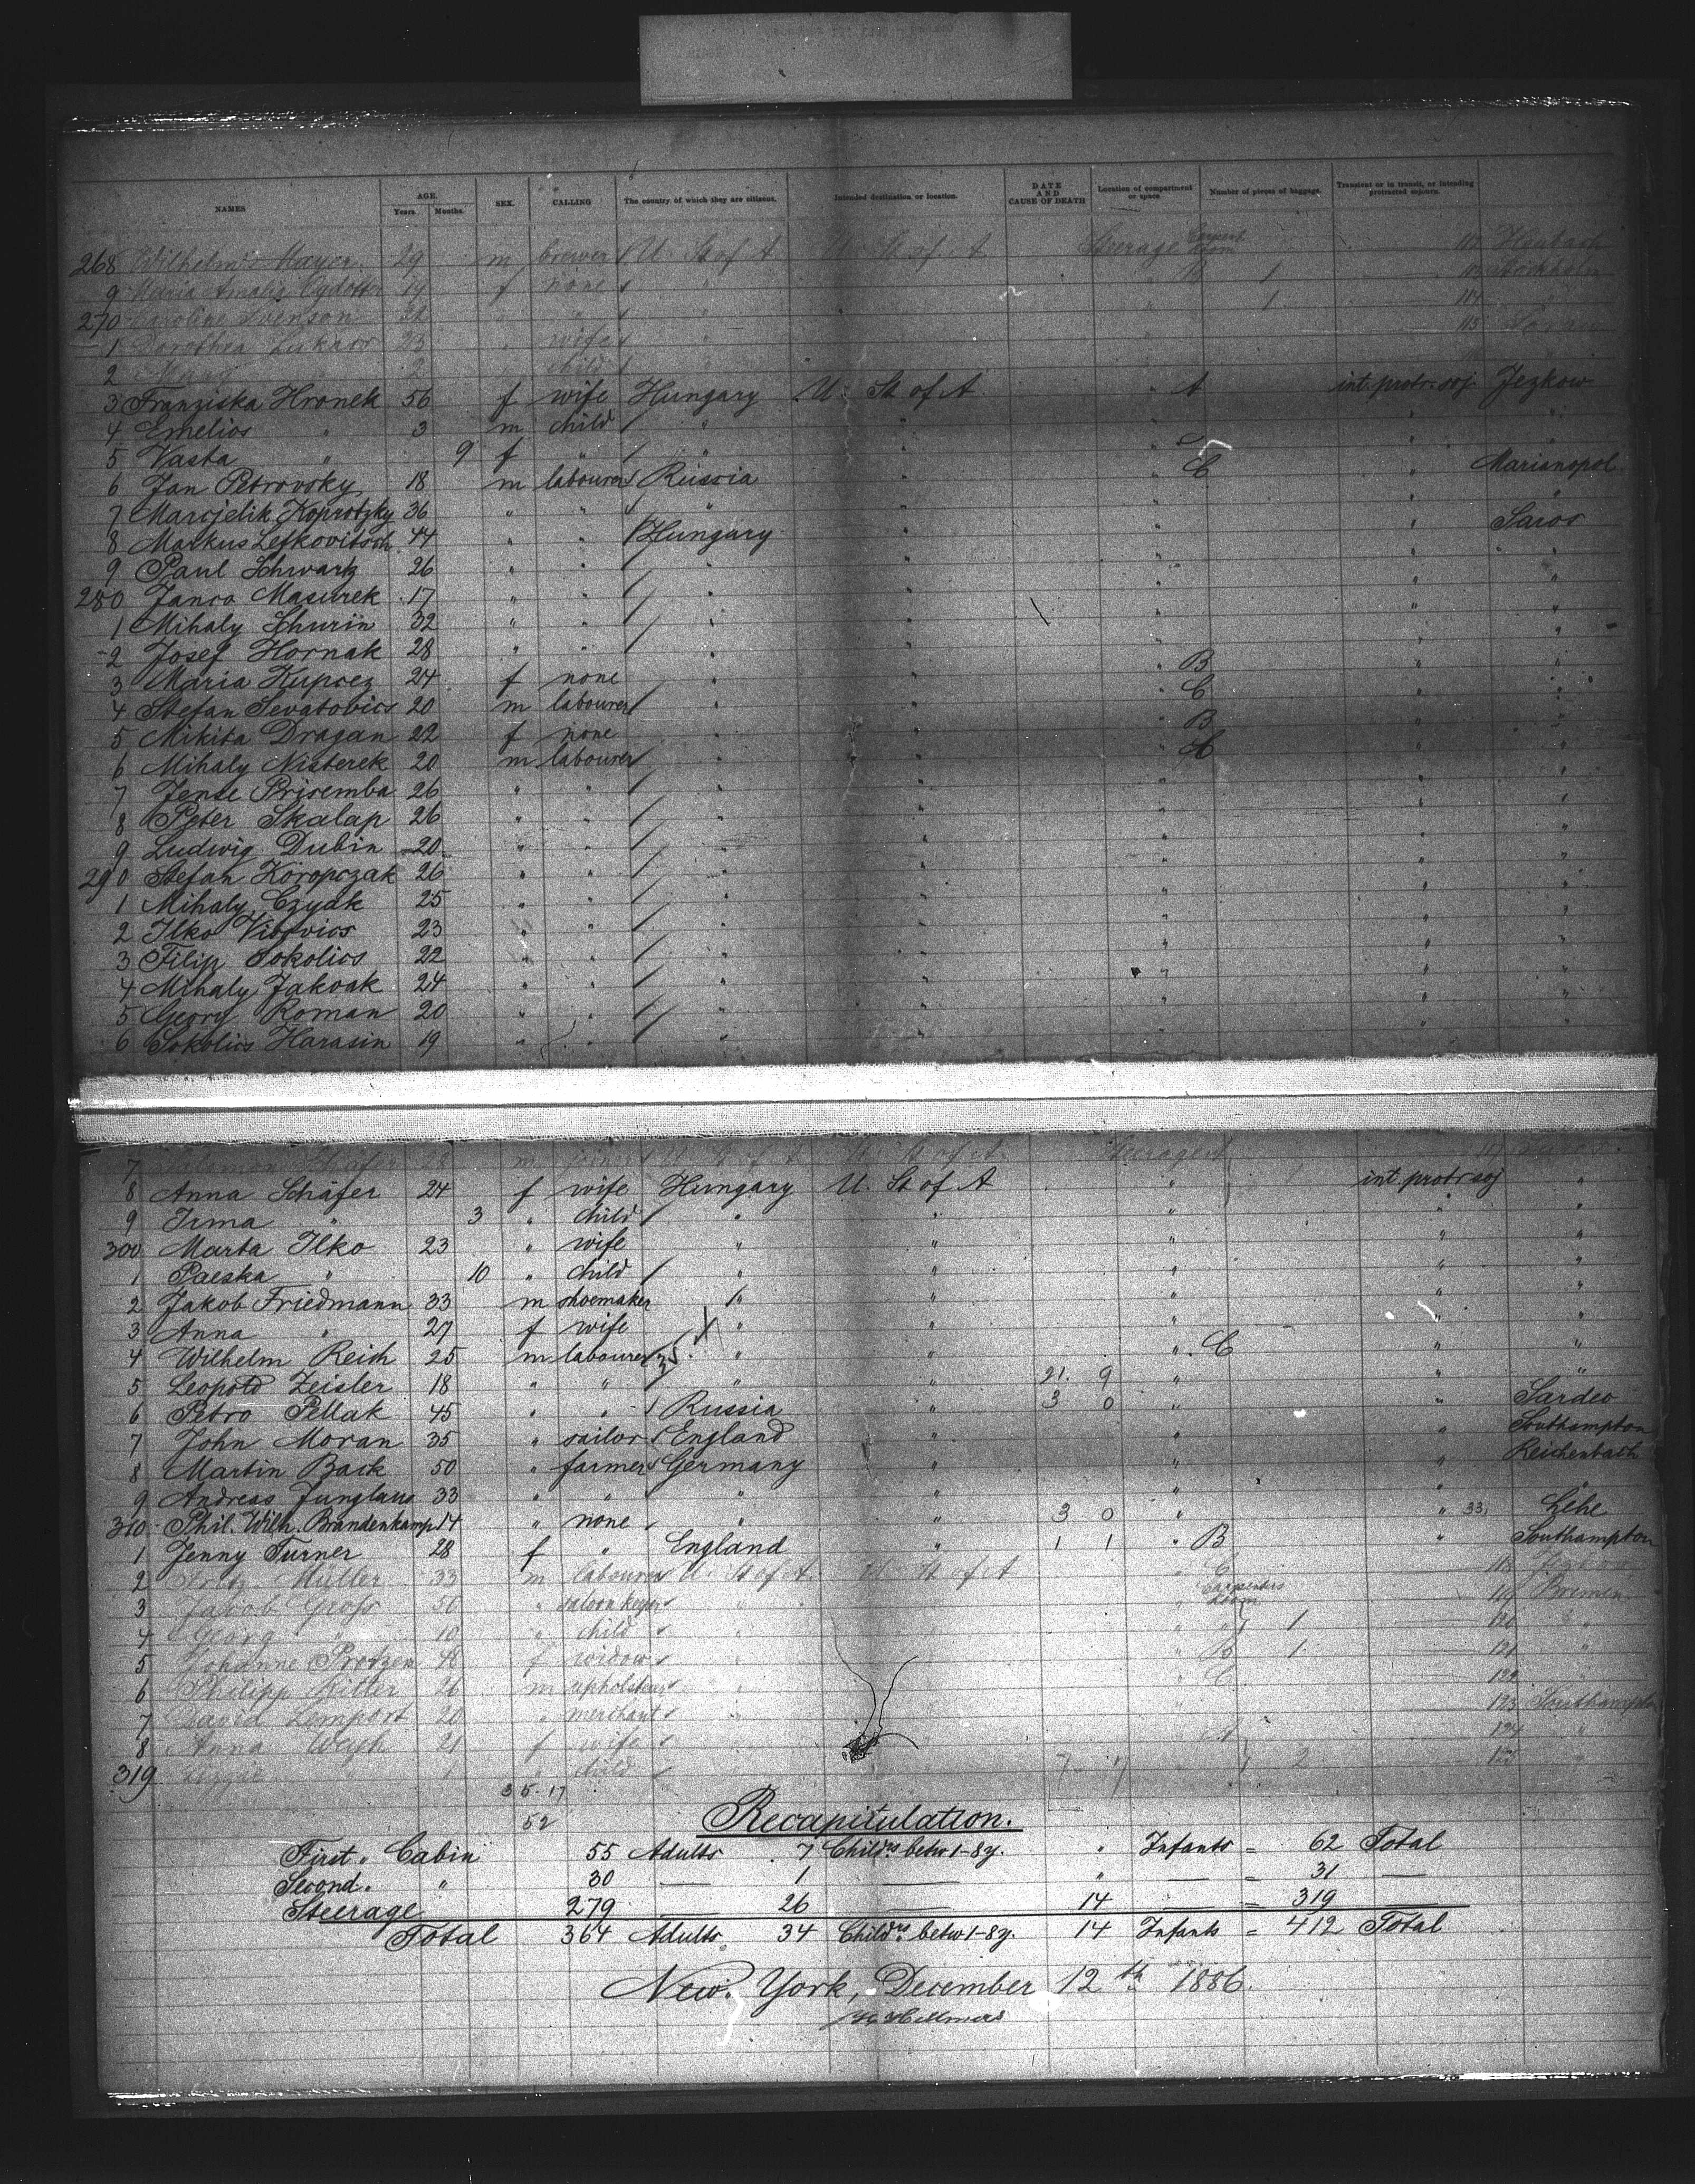 NAMES AGE. Years Months SEX. CALLING The country of which they are citizens. Intended destination or location. DATE AND CAUSE OF DEATH Location of compartment or space Number of pieces of baggage. Transient or in transit, or intending protracted sojourn.
268 Wilhelm Mayer 29 m brewer U. St of A U. St of A Steerage 1
9 Maria Amalia 19 f none " B 1 Stockholm
270 Caroline Svenson " " " 1 114
1 Dorothea Lukacs 23 " wife " 115
2 2 child
3 Franziska Hronek 56 f wife Hungary U. St of A " A int. protr. soj Jezkow
4 Emelios " 3 m child " " " " "
5 Vasta " 9 f " " " " "
6 Jan Petrovsky 18 m labourer Russia " " C " Marianopol
7 Marcjelik Koprotzky 36 " " " " " " "
8 Markus Lefkovitsch 44 " " Hungary " " " Saros
9 Paul Schwarz 26 " " " " " " "
280 Janco Masurek 17 " " " " " " "
1 Mihaly Schurin 32 " " " " " " "
2 Josef Hornak 28 " " " " " " "
3 Maria Kupcez 24 f none " " " B " "
4 Stefan Sevatovics 20 m labourer " " " C " "
5 Mikita Dragan 22 f none " " " B " "
6 Mihaly Nisterek 20 m labourer " " " C " "
7 Jense Prisemba 26 " " " " " " "
8 Peter Skalap 26 " " " " " " "
9 Ludwig Dubin 20 " " " " " " "
290 Stefan Koropczak 26 " " " " " " "
1 Mihaly Czyak 25 " " " " " " "
2 Ilko Vibovics 23 " " " " " " "
3 Filip Sokolics 22 " " " " " " "
4 Mihaly Jakoak 24 " " " " " " "
5 Georg Roman 20 " " " " " " "
6 Sokolics Harasin 19 " " " " " " "
7 Salomon Schäfer 28 m joiner U. St of A U. St of A Steerage
8 Anna Schäfer 24 f wife Hungary U. St of A " int. protr soj "
9 Irma " 3 " child " " " " "
300 Marta Ilko 23 " wife " " " " "
1 Paeska " 10 " child " " " " "
2 Jakob Friedmann 33 m shoemaker " " " " "
3 Anna " 27 f wife " " " " "
4 Wilhelm Reich 25 m labourer " " " C " "
5 Leopold Zeisler 18 " " " " 21. 9 " " "
6 Petro Pellak 45 " " Russia " 3 0 " " Sardeo
7 John Moran 35 " sailor England " " " Southampton
8 Martin Back 50 " farmer Germany " " " Reichenbach
9 Andreas Junglaus 33 " " " " " " "
310 Phil. Wilh. Brandenkamp 14 " none " " 3 0 " " 33. Lehe
1 Jenny Turner 28 f " England " 1 1 " B " Southampton
2 Fritz Müller 33 m labourer U. St of A. U. St of A " C 118
3 Jacob Gross 50 " saloonkeeper " " " Carpenters room 119 Bremen
4 Georg " 10 " child " " " 1 120 "
5 Johanne Protzen 48 f widow " " B 1. 121 "
6 Philipp Ritter 26 m upholsterer " " C 122 "
7 David Lemport 20 " merchant " " 123 Southampton
8 Anna Weyh 21 f wife " A 124 "
319 Lizzie 1 " child 2
35. 17
52
Recapitulation.
First " Cabin 55 Adults 7 Childrs betw 1-8 y. " Infants = 62 Total
Second. " 30 — 1 — " — = 31 —
Steerage 279 — 26 — 14 — = 319 —
Total 364 Adults 34 Childrs betw 1-8 y. 14 Infants = 412 Total
New York, December 12th 1886.
Hellmers